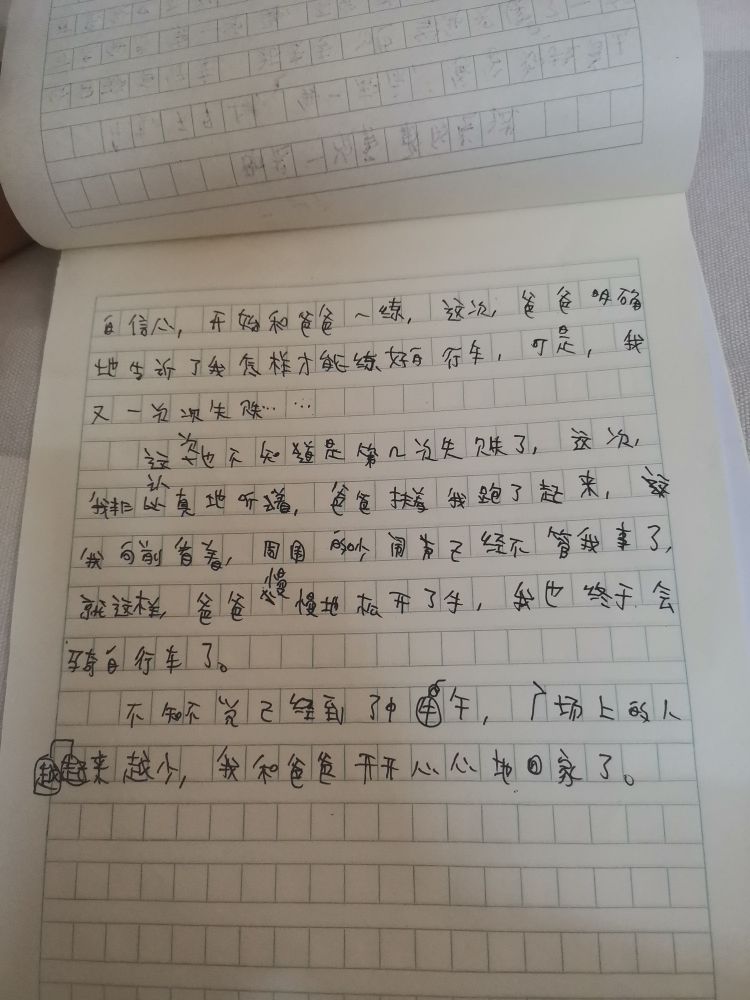 自信心,开始和爸爸一练,这次,爸爸明确
地告诉了我怎样才能练好自行车,可是,我
又一次次失败……
这次也不知道是第几次失败了,这次,
我认真地听着,爸爸扶着我跑了起来,
我向前看着,周围的吵闹声已经不管我事了,
就这样,爸爸慢慢地松开了手,我也终于会
骑自行车了。
不知不觉已经到了中午,广场上的人
越来越少,我和爸爸开开心心地回家了。